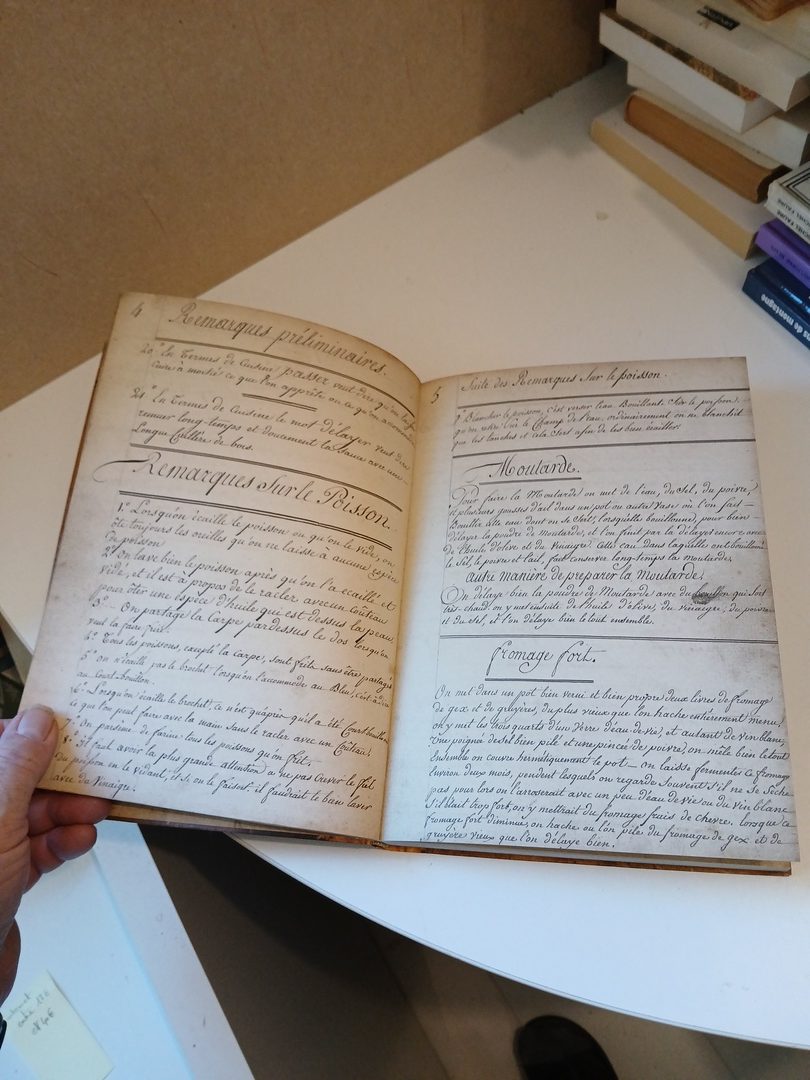 4
Remarques préliminaires.
20° En Termes de Cuisine passer veut dire qu'on fasse
Cuire à moitié ce que l'on apprête ou ce qu'on accommode
21° En Termes de Cuisine le mot délayer veut dire
remuer long-temps et doucement la Sauce avec une
Longue Cuillere de bois.
Remarques Sur le Poisson.
1° Lorsqu'on écaille le poisson ou qu'on le vide, on
ôte toujours les ouilles qu'on ne laisse à aucune espèce
de poisson
2° On lave bien le poisson après qu'on l'a écaillé et
vidé, et il est à propos de le racler avec un Coûteau
pour ôter une espèce d'huile qui est dessus la peau.
3° On partage la Carpe par dessus le dos lorsqu'on
veut la faire frire.
4° Tous les poissons, excepté la carpe, sont frits sans être partagés
5° on n'écaille pas le brochet lorsqu'on l'accommode au Bleu, c'est à dire
au Court-bouillon.
6° Lorsqu'on écaille le brochet, ce n'est qu'après qu'il a été Court-bouillonné
ce que l'on peut faire avec la main sans le racler avec un Coûteau.
7° On parsème de farine tous les poissons qu'on frit.
8° Il faut avoir la plus grande attention à ne pas Crever le fiel
du poisson en le vidant, et si on le faisoit, il faudroit le bien laver
avec du Vinaigre.
5
Suite des Remarques Sur le poisson.
9° Blanchir le poisson, c'est verser l'eau Bouillante Sur le poisson,
qu'on retire Sur le Champ de l'eau, ordinairement on ne blanchit
que les tanches et cela Sert afin de les bien écailler.
Moutarde.
Pour faire la Moutarde on met de l'eau, du Sel, du poivre,
et plusieurs gousses d'ail dans un pot ou autre Vase où l'on fait
Bouillir cette eau dont on se Sert, lorsqu'elle bouillonne, pour bien
délayer la poudre de moutarde, et l'on finit par la délayer encore avec
de l'huile d'olive et du Vinaigre. Cette eau dans laquelle ont bouillonné
le Sel, le poivre et l'ail, fait conserver long-temps la moutarde.
autre manière de préparer la Moutarde.
On délaye bien la poudre de Moutarde avec du bouillon qui Soit
très-chaud, on y met ensuite de l'huile d'olive, du vinaigre, du poivre
et du Sel, et l'on délaye bien le tout ensemble.
fromage fort.
On met dans un pot bien verni et bien propre deux livres de fromage
de gex et de gruyères, du plus vieux que l'on hache entièrement menu,
on y met les trois quarts d'un Verre d'eau-de-vie, et autant de vin blanc,
Une poignée de Sel bien pilé et une pincée de poivre, on mêle bien le tout
Ensemble on Couvre hermétiquement le pot — on laisse fermenter ce fromage
Environ deux mois, pendent lesquels on regarde Souvent s'il ne se Sèche
pas pour lors on l'arroserait avec un peu d'eau de vie ou du vin blanc
s'il était trop fort, on y mettrait du fromage frais de chevre. lorsque ce
fromage fort diminue, on hache ou l'on pile du fromage de gex et de
gruyère vieux que l'on délaye bien.
de montagne